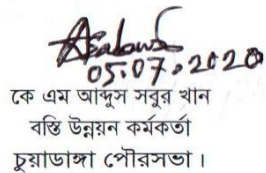 05.07.2020
কে এম আব্দুস সবুর খান
বস্তি উন্নয়ন কর্মকর্তা
চুয়াডাঙ্গা পৌরসভা।